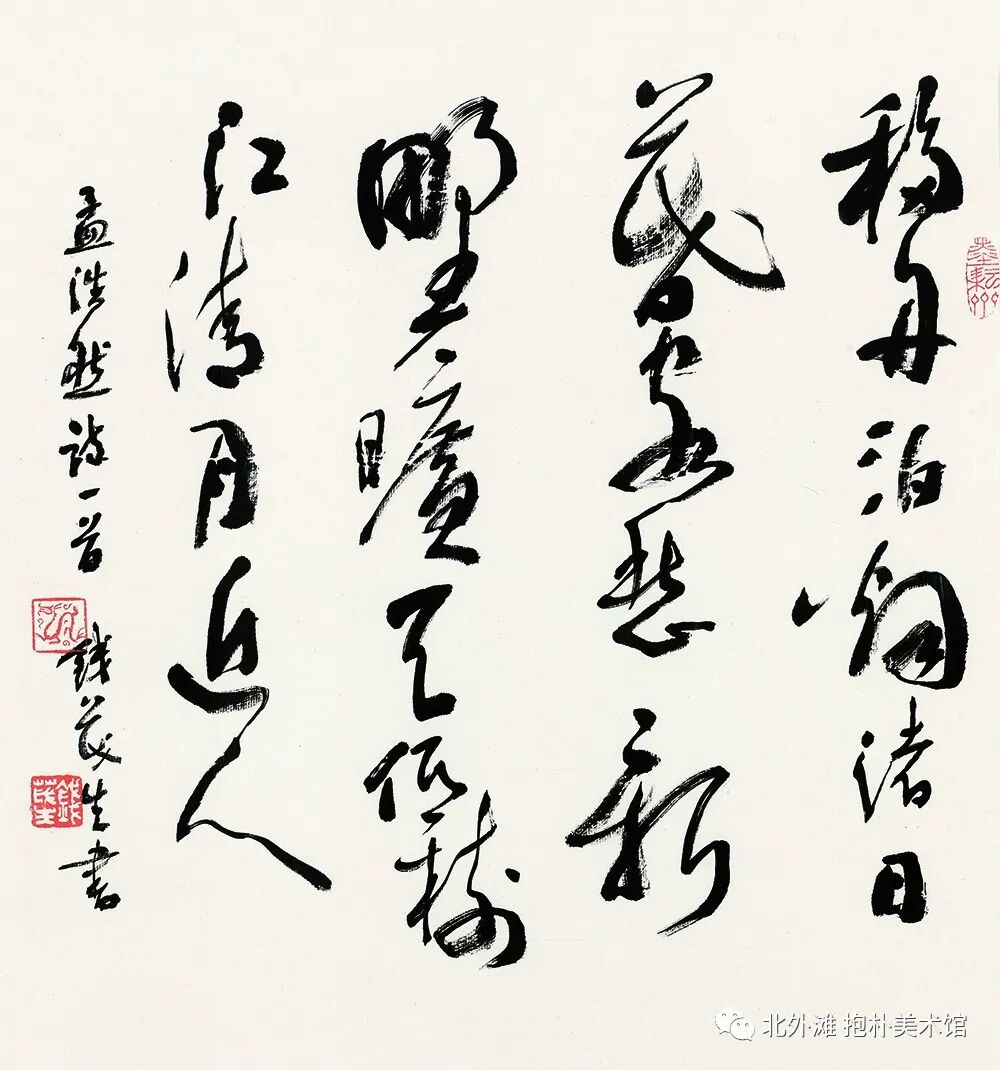 移舟泊烟渚日
暮客愁新
野曠天低樹
江清月近人
孟浩然詩一首 錢茂生書
錢茂生
北外滩 抱朴美术馆